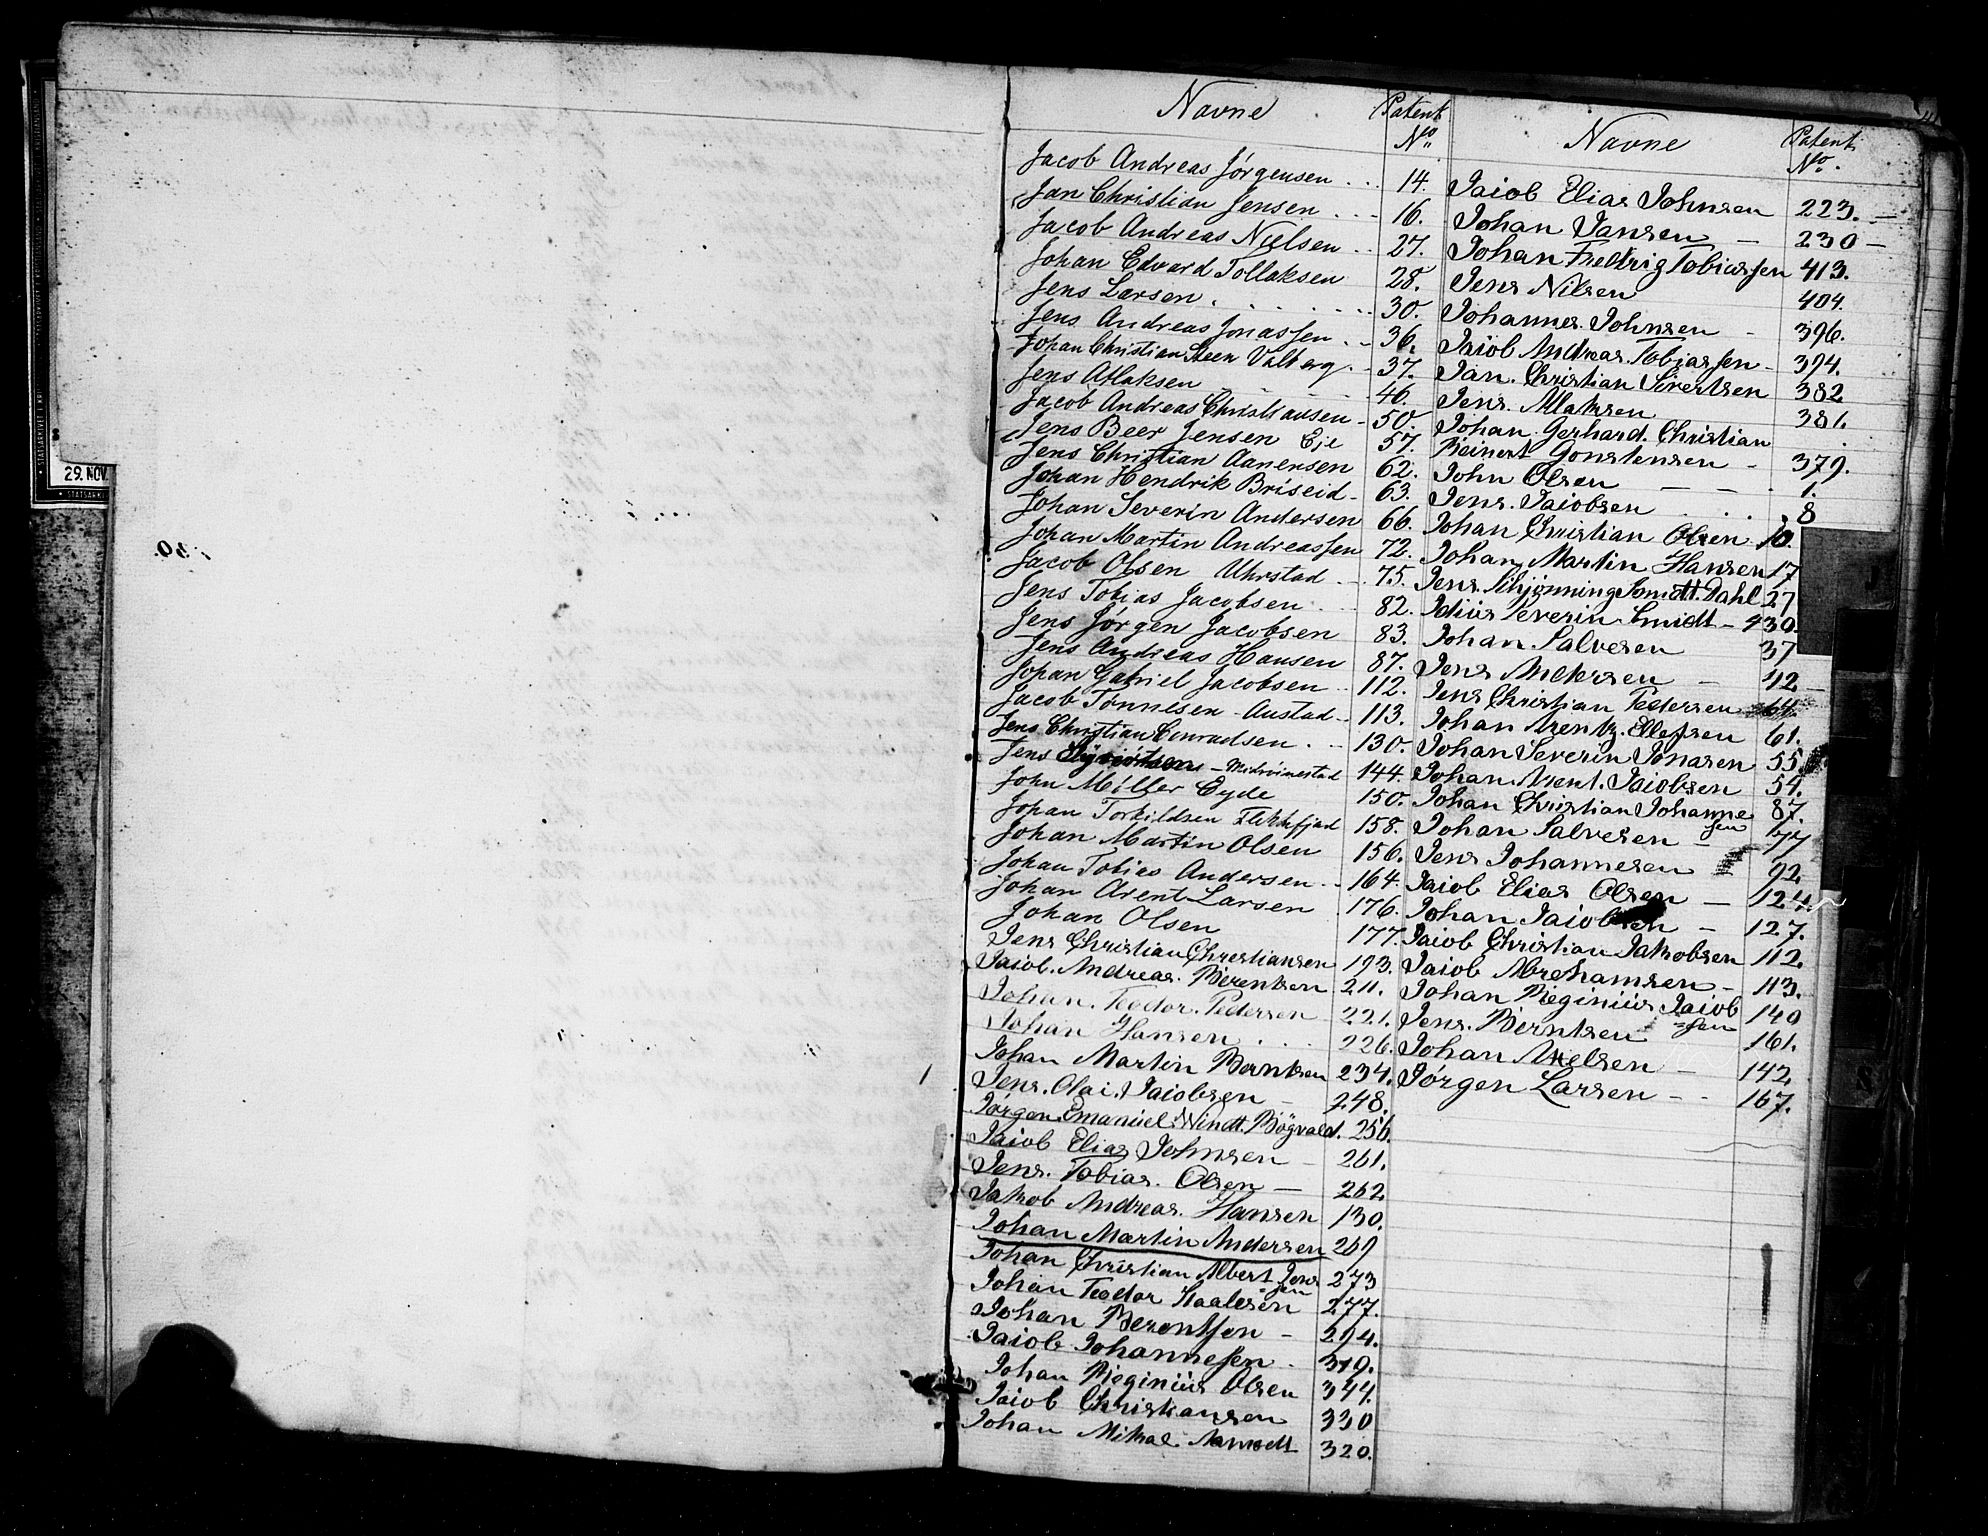 Navne Patent No.
Jacob Andreas Jørgensen . . . 14.
Jan Christian Jensen . . . 16.
Jacob Andreas Nielsen . . 27.
Johan Edvard Tollaksen 28.
Jens Larsen . . . . . . . 30.
Jens Andreas Jonassen . . 36.
Johan Christian Steen Valberg . . 37.
Jens Atlaksen 46.
Jacob Andreas Christiansen - 50.
Jens Beer Jensen Eje 57.
Jens Christian Aanensen 62.
Johan Hendrik Briseid - 63.
Johan Severin Andersen 66.
Johan Martin Andreassen 72.
Jacob Olsen Uhrstad . . . 75.
Jens Tobias Jacobsen . . . 82.
Jens Jørgen Jacobsen 83.
Jens Andreas Hansen 87.
Johan Gabriel Jacobsen . . 112.
Jacob Tønnesen Austad . . 113.
Jens Christian Conradsen . . . 130.
Jens 144.
John Møller Eyde 150.
Johan Torkildsen Flekkefjord 158.
Johan Martin Olsen 156.
Johan Tobias Andersen . . 164.
Johan Arent Larsen . 176.
Johan Olsen 177.
Jens Christian Christiansen 193.
Jacob. Andreas. Berentsen 211.
Johan. Teodor. Pedersen 221.
Johan Hansen . . . 226.
Johan Martin Berntsen 234.
Jens. Olai. Jacobsen - 248.
Jørgen. Emanuel. Windt. Bögvald. 256.
Jacob Elias Johnsen - 261.
Jens. Tobias. Olsen — 262
Jakob Andreas. Hansen 130.
Johan Martin Andersen 269
Johan Christian Albert Jens 273
-sen
Johan Teodor Staalesen 277.
Johan Berentsen - 294.
Jacob Johannesen . 319.
Johan Reginius Olsen 344.
Jacob Christiansen 330
Johan Mikal Aamodt 320.
Navne Patent No.
Jacob Elias Johnsen 223. —
Johan Jansen — 230 —
Johan Fredrig Tobiassen 413.
Jens Nilsen 404.
Johannes. Johnsen - 396.
Jacob Andreas. Tobiassen - 394.
Jan. Christian Sivertsen 382
Jens. Atlaksen 381.
Johan. Gerhard. Christian
Reinert Gonstensen - 379.
John Olsen — — - . 1.
Jens. Jacobsen . . . 8
Johan Christian Olsen 10.
Johan Martin Hansen 17
Jens. Schjønning Smidt. Dahl 27
Julius Severin Smidt - 430.
Johan Salvesen 37
Jens Andersen — 42 —
Jens Christian Pedersen 64
Johan Arentz. Ellefsen 61.
Johan Severin Jonasen 55
Johan. Arent. Jacobsen 54.
Johan Christian Johanne 87.
sen
Johan Salvesen - 77
Jens Johannesen 92
Jacob Elias Olsen — 124.
Johan Jacobsen — 127.
Jacob Christian Jakobsen 112.
Jacob Abrehamsen - 113.
Johan Reginius Jacob 140
-sen
Jens. Berntsen 161.
Johan Nielsen — 142.
Jørgen Larsen - - 167.
29. NOV.
STATSARKIVET I KRISTIANSAND